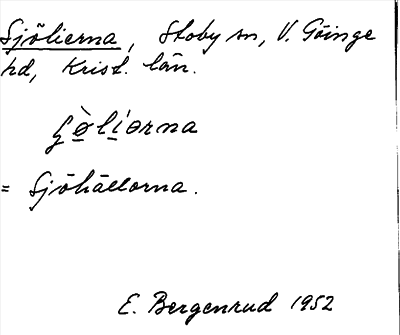 Sjölierna, Stoby sn, V. Göinge
hd, Krist. län.
= Sjöhällorna.
E. Bergenrud 1952